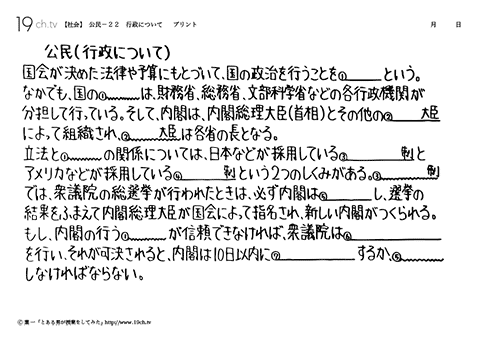 19ch.tv 【社会】 公民－22 行政について プリント 月 日
公民(行政について)
国会が決めた法律や予算にもとづいて、国の政治を行うことを①______という。
なかでも、国の①______は、財務省、総務省、文部科学省などの各行政機関が
分担して行っている。そして、内閣は、内閣総理大臣(首相)とその他の②______大臣
によって組織され、②______大臣は各省の長となる。
立法と①______の関係については、日本などが採用している③______制と
アメリカなどが採用している④______制という2つのしくみがある。③______制
では、衆議院の総選挙が行われたときは、必ず内閣は⑤______し、選挙の
結果をふまえて内閣総理大臣が国会によって指名され、新しい内閣がつくられる。
もし、内閣の行う①______が信頼できなければ、衆議院は⑥______
を行い、それが可決されると、内閣は10日以内に⑦______するか、⑤______
しなければならない。
© 葉一「とある男が授業をしてみた」http://www.19ch.tv